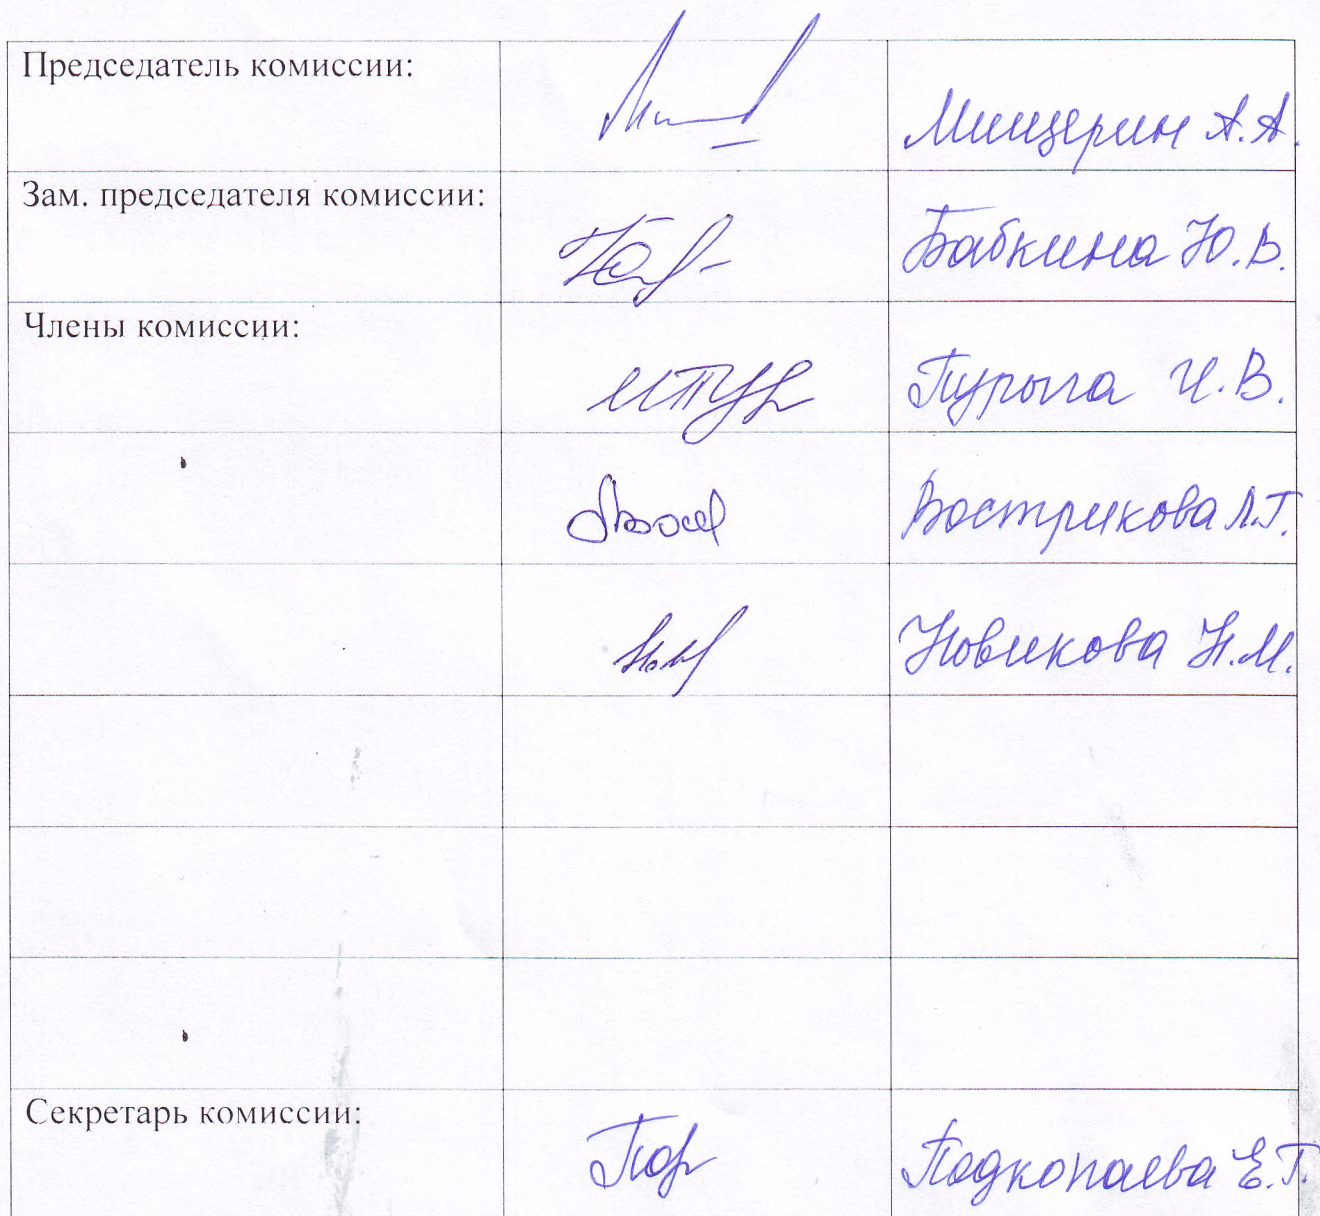 Председатель комиссии:
Мищерин А.А.
Зам. председателя комиссии:
Бабкина Ю.В.
Члены комиссии:
Пурыга И.В.
Вострикова Л.Г.
Новикова Н.М.
Секретарь комиссии:
Подкопаева Е.Г.